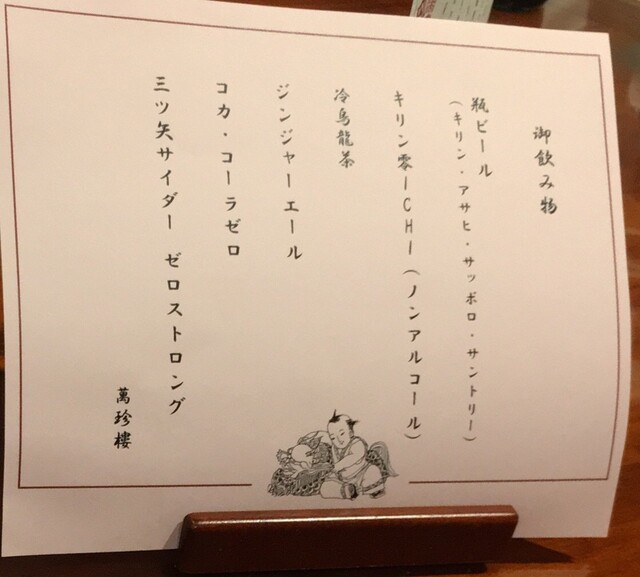 御飲み物
瓶ビール
(キリン・アサヒ・サッポロ・サントリー)
キリン零ICHI(ノンアルコール)
冷烏龍茶
ジンジャーエール
コカ・コーラゼロ
三ツ矢サイダー ゼロストロング
萬珍樓